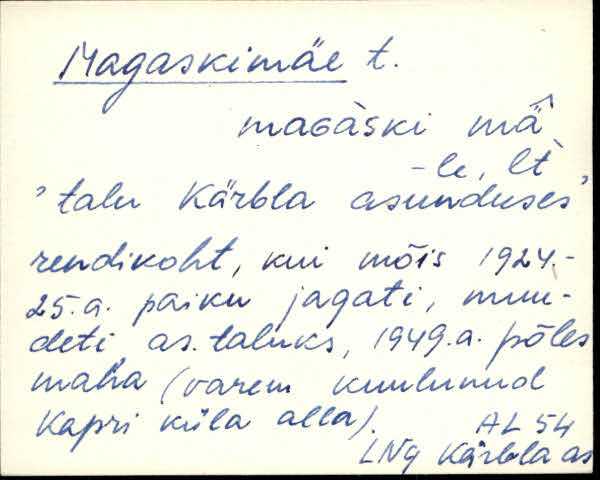 Magaskimäe t.
maGàski mä̂
-le, lt
"talu Kärbla asunduses"
rendikoht, kui mõis 1924.-
25.a. paiku jagati, muu-
deti as. taluks, 1949.a. põles
maha (varem kuulunud
Kapri küla alla).
AL 54
LNg Kärbla as